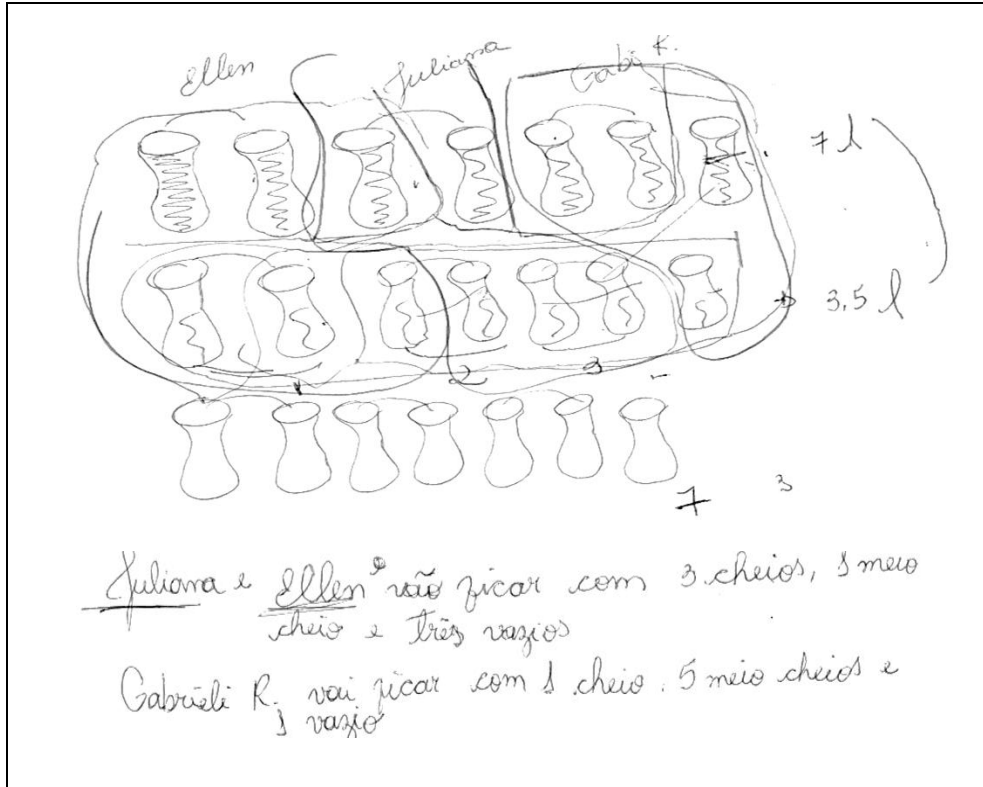 Ellen Juliana Gabi R.
7 l
3,5 l
1 2 3
7 3
Juliana e Ellen vão ficar com 3 cheios, 1 meio
cheio e três vazios
Gabrieli R. vai ficar com 1 cheio. 5 meio cheios e
1 vazio